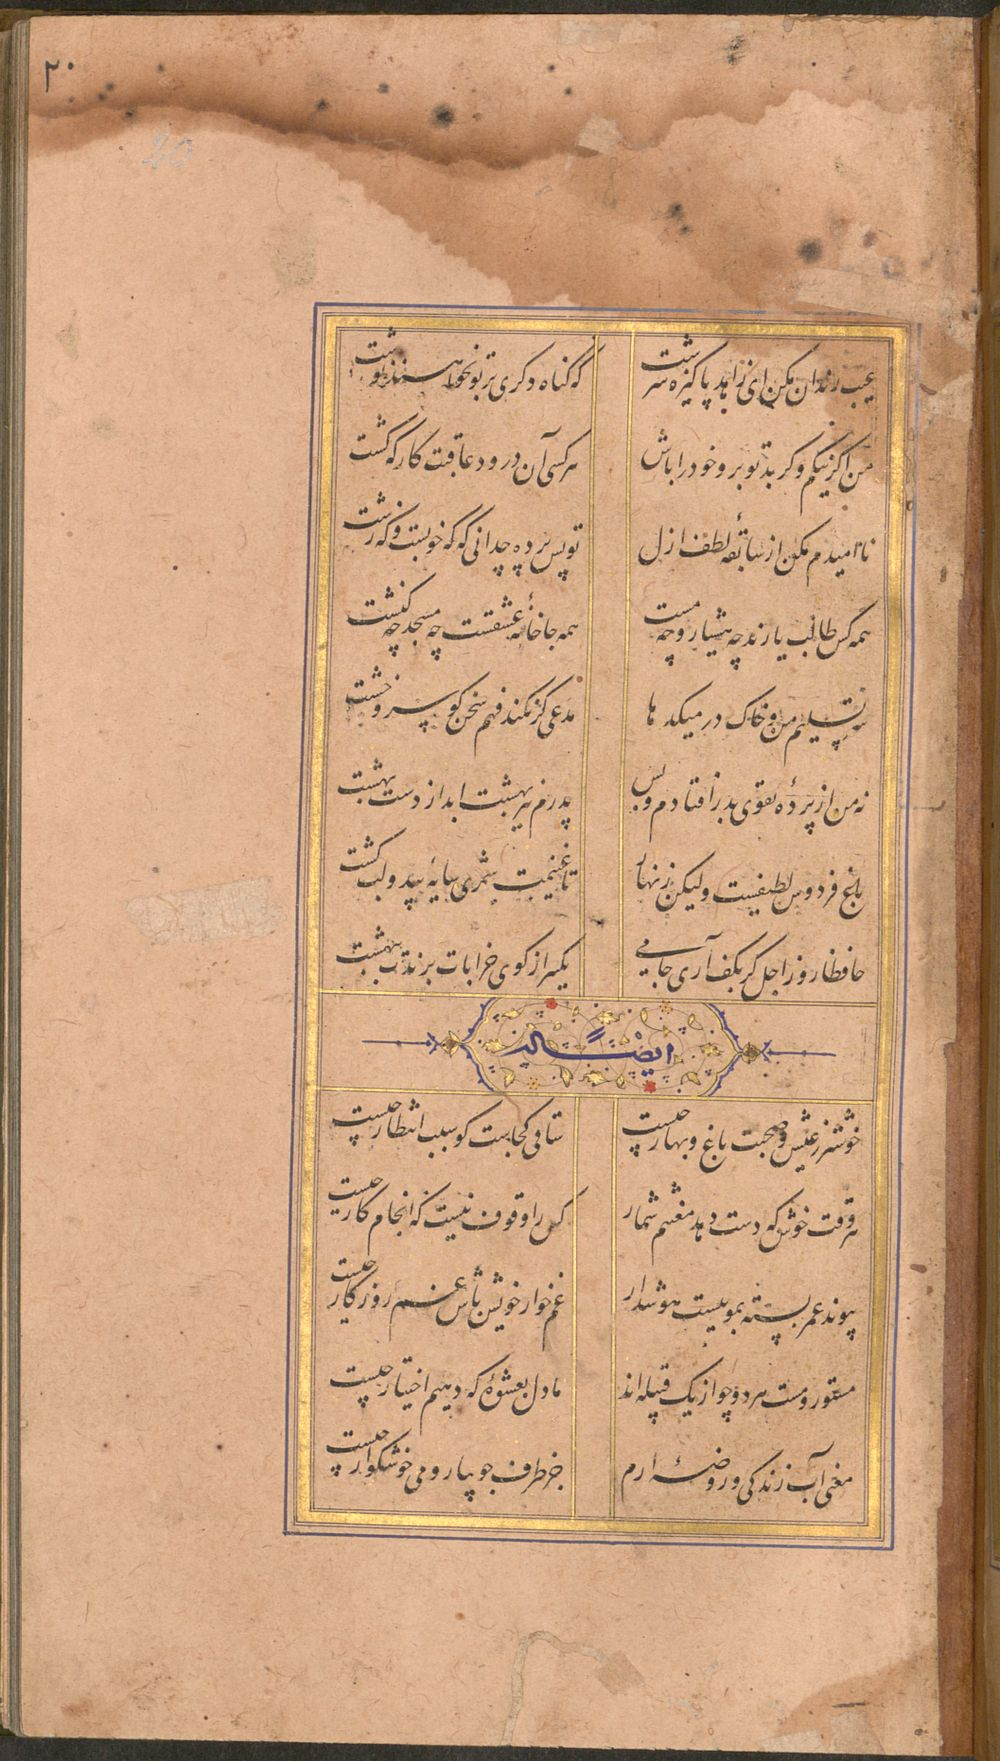 ۲۰
20
عیب رندان مکن ای زاهد پاکیزه سرشت که گناه دکری بر تو نخواهند نوشت
من اکر نیکم و کر بد تو برو خود را باش هر کسی آن درود عاقبت کار که کشت
ناامیدم مکن از سابقهٔ لطف ازل تو پس پرده چه دانی که که خوبست و که زشت
همه کس طالب یارند چه هشیار و چه مست همه جا خانهٔ عشقست چه مسجد چه کنشت
سر تسلیم من و خاک در میکدها مدعی کر نکند فهم سخن کو سر و خشت
نه من از پردهٔ تقوی بدر افتادم و بس پدرم نیز بهشت ابد از دست بهشت
باغ فردوس لطیفست ولیکن زنهار تا غنیمت شمری سایهٔ بید و لب کشت
حافظا روز اجل کر بکف آری جامی یکسر از کوی خرابات برندت ببهشت
ایضاً له
خوشتر ز عیش و صحبت باغ و بهار چیست ساقی کجاست کو سبب انتظار چیست
هر وقت خوش که دست دهد مغتنم شمار کس را وقوف نیست که انجام کار چیست
پیوند عمر بسته بموییست هوشدار غم‌خوار خویش باش غم روزکار چیست
مستور و مست هر دو چو از یک قبیله‌اند ما دل بعشوهٔ که دهیم اختیار چیست
معنی آب زندکی و روضهٔ ارم جز طرف جویبار و می خوشکوار چیست